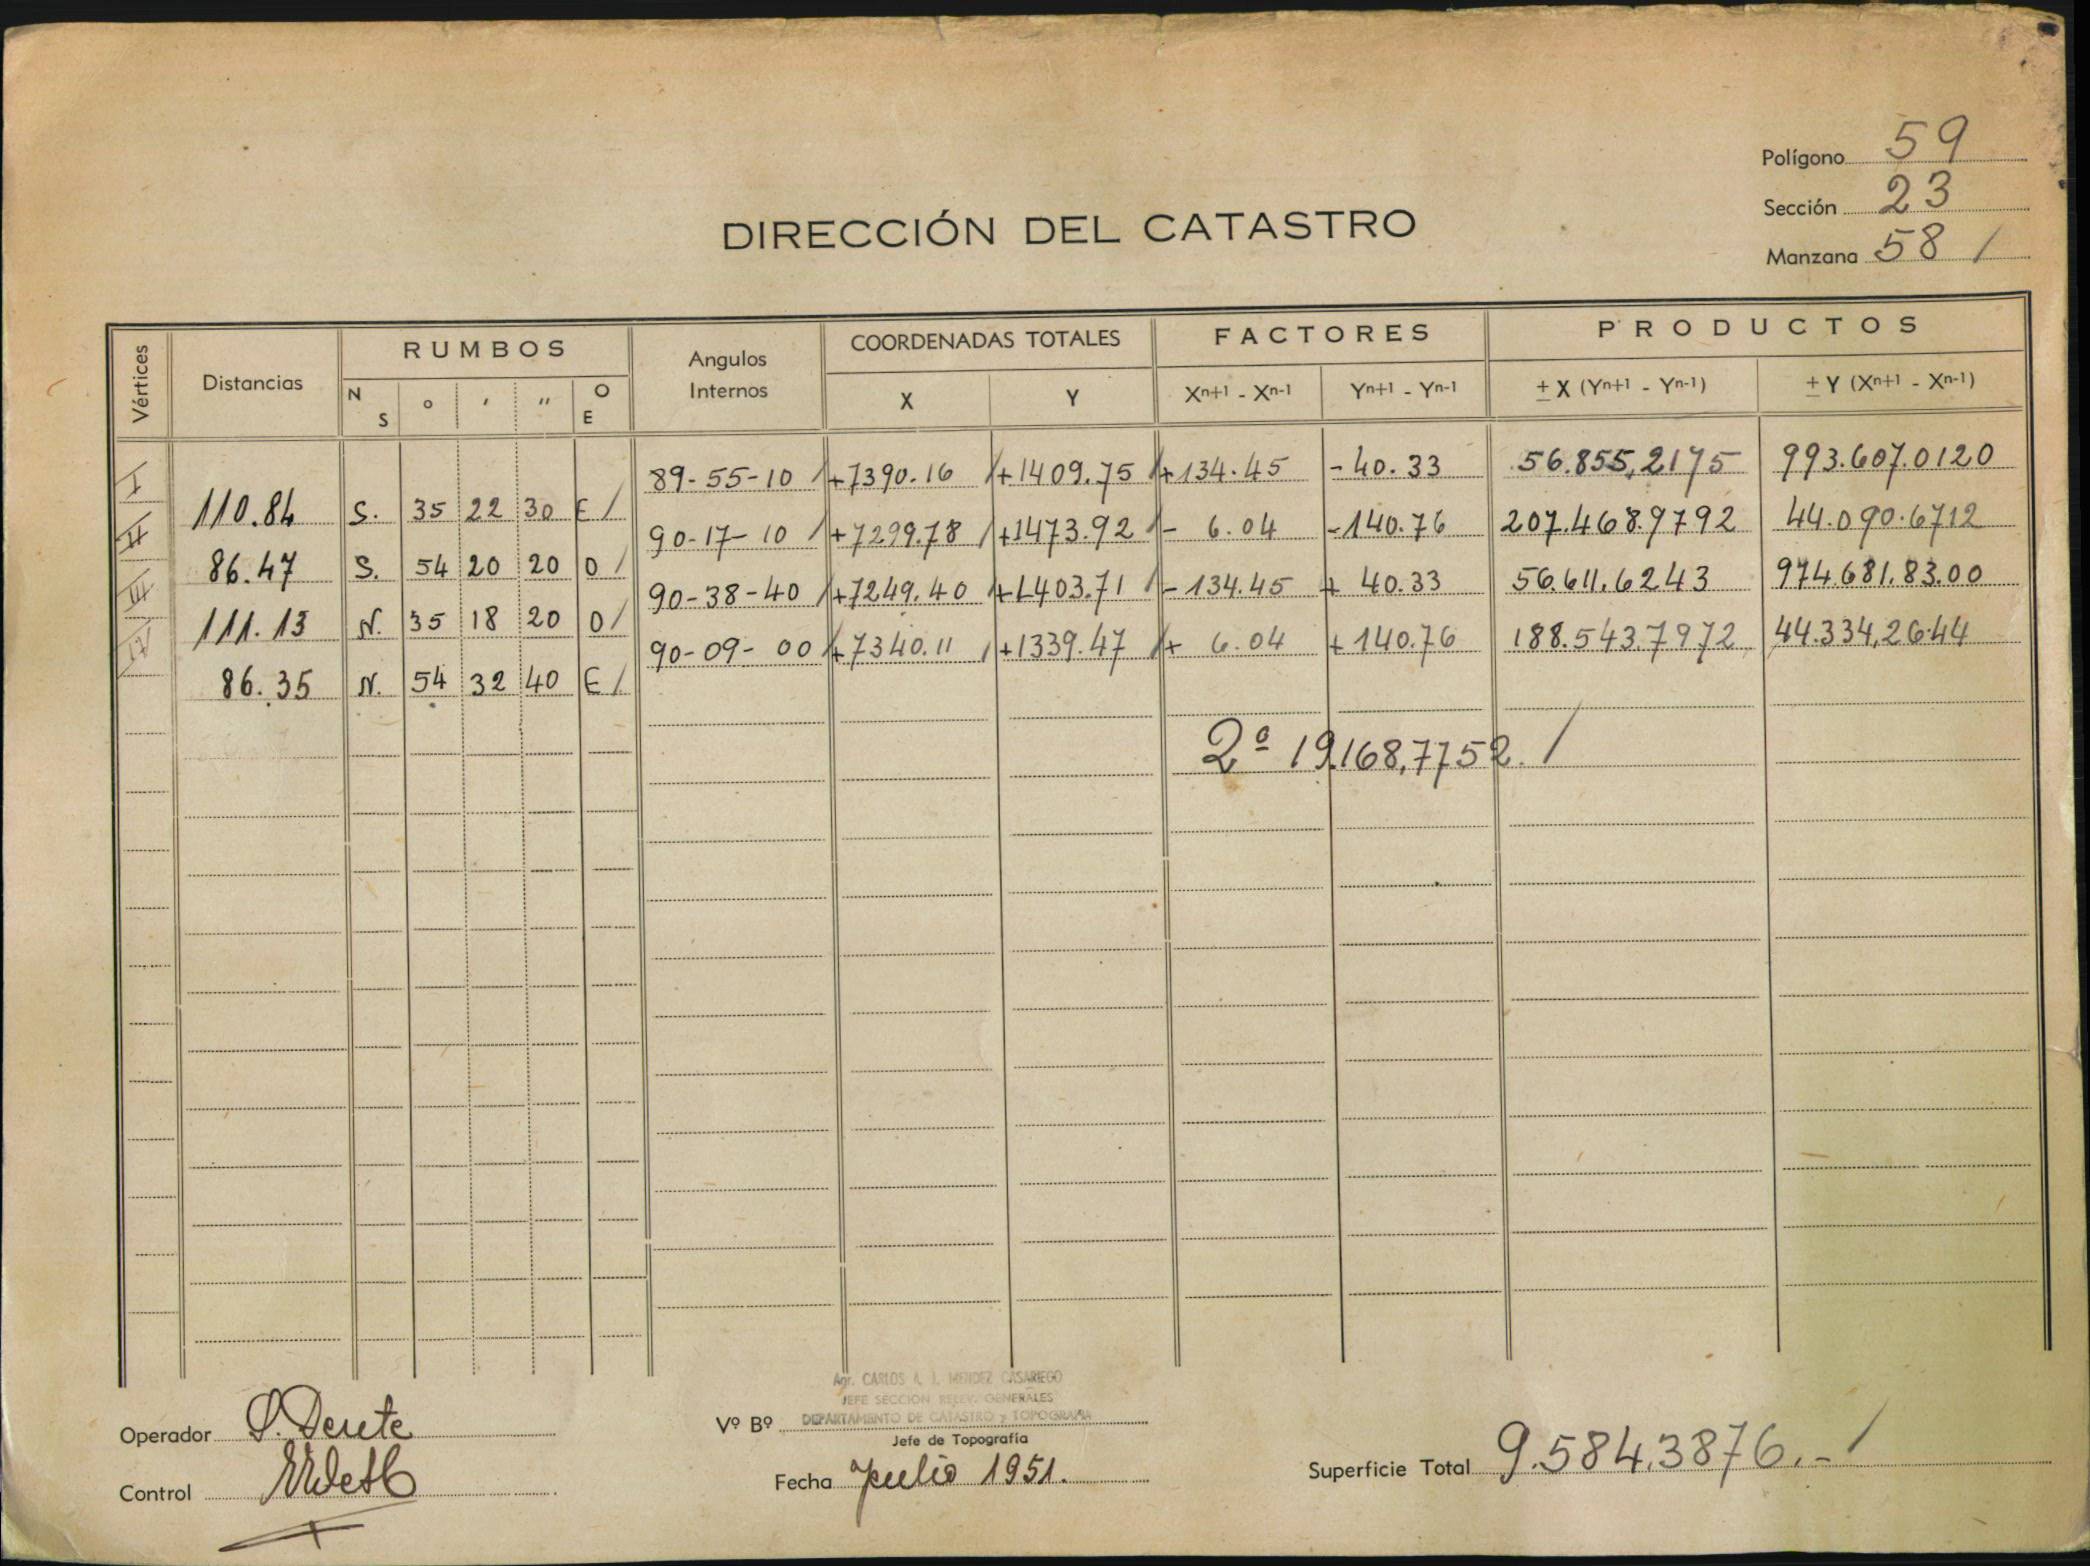 Polígono 59
Sección 23
Manzana 58 /
DIRECCIÓN DEL CATASTRO
Vértices Distancias RUMBOS Angulos Internos COORDENADAS TOTALES FACTORES PRODUCTOS
N S o ' '' O E X Y Xn+1 - Xn-1 Yn+1 - Yn-1 ± X (Yn+1 - Yn-1) ± Y (Xn+1 - Xn-1)
I 89-55-10 / +7390.16 / +1409.75 / +134.45 -40.33 56.855,2175 993.607.0120
110.84 S. 35 22 30 E /
II 90-17-10 / +7299.78 / +1473.92 / - 6.04 -140.76 207.468.9792 44.090.6712
86.47 S. 54 20 20 O /
III 90-38-40 / +7249.40 / +1403.71 / -134.45 + 40.33 56.611.6243 974.681.83.00
111.13 N. 35 18 20 O /
IV 90-09-00 / +7340.11 / +1339.47 / + 6.04 + 140.76 188.543.7972 44.334,26.44
86.35 N. 54 32 40 E /
2ª 19.168,7752. /
Agr. CARLOS A. J. MENDEZ CASARIEGO
JEFE SECCION RELEV. GENERALES
DEPARTAMENTO DE CATASTRO y TOPOGRAFIA
Operador Vº Bº
Jefe de Topografía
Control Fecha Julio 1951. Superficie Total 9.584.3876.- /